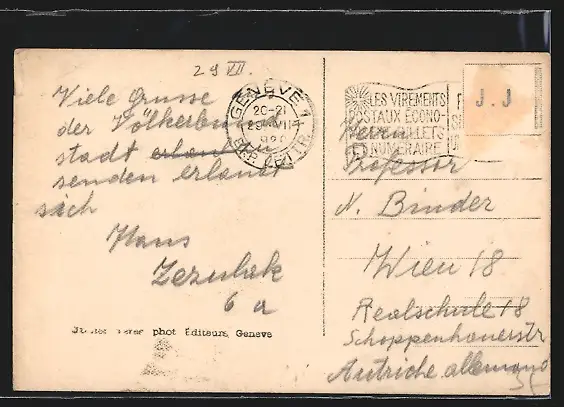 29 VII.
Viele Grüsse
der Völkerbund
stadt erlauben
senden erlaubt
sich
Hans
Zezulak
6a
phot Éditeurs, Geneve
GENÈVE 1
20-21
29 VII
EXP. LETTR.
LES VIREMENTS
POSTAUX ÉCONO-
BILLETS
ET NUMÉRAIRE
J.J
Herrn
Professor
N. Binder
Wien 18
Realschule 18
Schoppenhauerstr
Autriche allemand